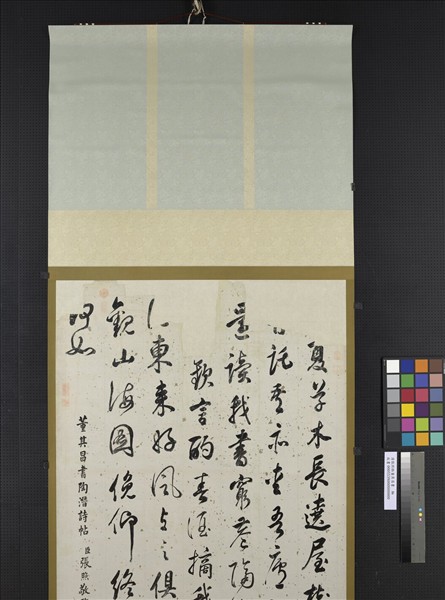 夏草木長遶屋樹
託吾亦愛吾廬
還讀我書窮巷隔
歡言酌春酒摘我
東來好風與之俱
觀山海圖俛仰終
何如
董其昌書陶潛詩帖 臣張照敬